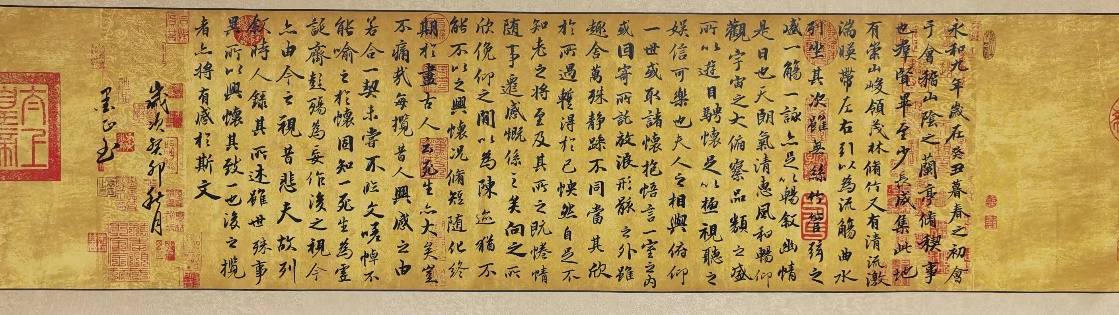 永和九年歲在癸丑暮春之初會
于會稽山陰之蘭亭脩禊事
也群賢畢至少長咸集此地
有崇山峻領茂林脩竹又有清流激
湍暎帶左右引以為流觴曲水
列坐其次雖無絲竹管弦之
盛一觴一詠亦足以暢敘幽情
是日也天朗氣清惠風和暢仰
觀宇宙之大俯察品類之盛
所以遊目騁懷足以極視聽之
娛信可樂也夫人之相與俯仰
一世或取諸懷抱悟言一室之內
或因寄所託放浪形骸之外雖
趣舍萬殊靜躁不同當其欣
於所遇暫得於己怏然自足不
知老之將至及其所之既惓情
隨事遷感慨係之矣向之所
欣俛仰之間以為陳迹猶不
能不以之興懷況脩短隨化終
期於盡古人云死生亦大矣豈
不痛哉每攬昔人興感之由
若合一契未嘗不臨文嗟悼不
能喻之於懷固知一死生為虛
誕齊彭殤為妄作後之視今
亦由今之視昔悲夫故列
敘時人錄其所述雖世殊事
異所以興懷其致一也後之攬
者亦將有感於斯文
歲次癸卯秋月
太上
皇帝